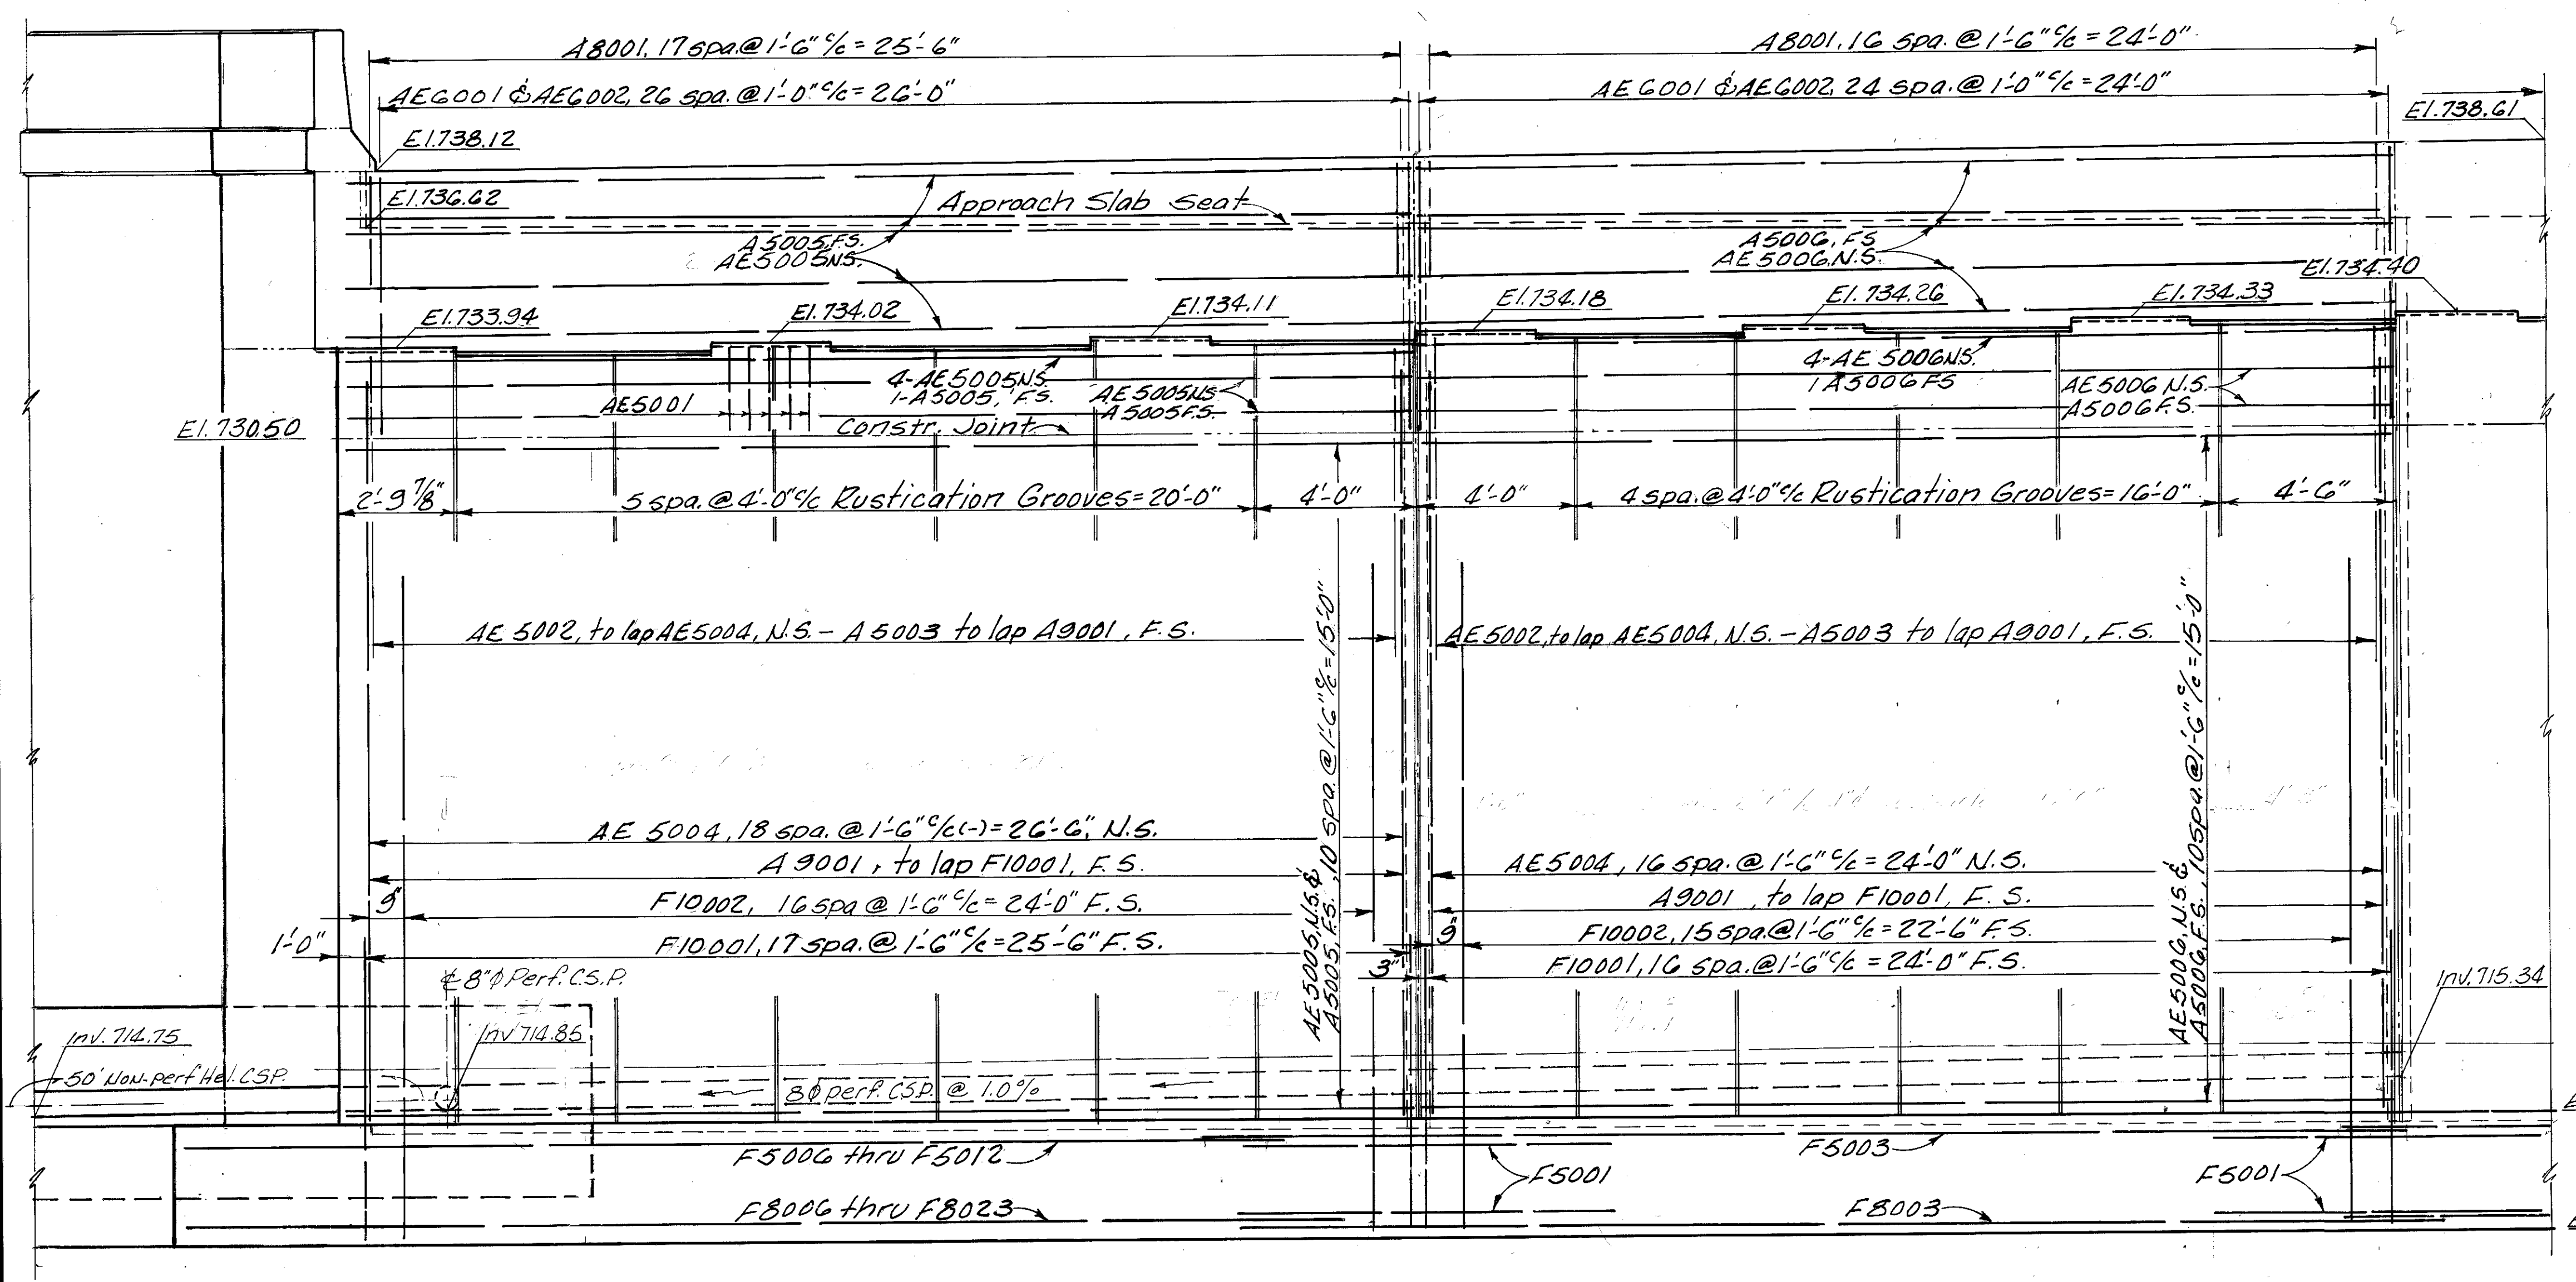 A8001, 17 spa. @ 1'-6" c/c = 25'-6"
A8001, 16 spa. @ 1'-6" c/c = 24'-0"
AE6001 & AE6002, 26 spa. @ 1'-0" c/c = 26'-0"
AE6001 & AE6002, 24 spa. @ 1'-0" c/c = 24'-0"
El. 738.61
El. 738.12
El. 736.62
Approach Slab Seat
A5005, F.S.
AE5005 N.S.
A5006, F.S
AE5006, N.S.
El. 734.40
El. 733.94
El. 734.02
El. 734.11
El. 734.18
El. 734.26
El. 734.33
4-AE5005 N.S.
1-A5005, F.S.
AE5005 N.S
A5005 F.S.
4-AE 5006 N.S.
1 A5006 FS
AE5006 N.S.
A5006 F.S.
AE5001
El. 730.50
Constr. Joint
2'-9 7/8"
5 spa. @ 4'-0" c/c Rustication Grooves = 20'-0"
4'-0"
4'-0"
4 spa. @ 4'-0" c/c Rustication Grooves = 16'-0"
4'-6"
AE 5002, to lap AE5004, N.S. - A5003 to lap A9001, F.S.
AE5002, to lap AE5004, N.S. - A5003 to lap A9001, F.S.
AE5005, N.S. &
A5005, F.S., 10 spa. @ 1'-6" c/c = 15'-0"
AE5006, N.S. &
A5006, F.S., 10 spa. @ 1'-6" c/c = 15'-0"
AE 5004, 18 spa. @ 1'-6" c/c (-) = 26'-6", N.S.
A9001, to lap F10001, F.S.
9"
F10002, 16 spa @ 1'-6" c/c = 24'-0" F.S.
1'-0"
F10001, 17 spa. @ 1'-6" c/c = 25'-6" F.S.
AE5004, 16 spa. @ 1'-6" c/c = 24'-0" N.S.
A9001, to lap F10001, F.S.
9"
F10002, 15 spa. @ 1'-6" c/c = 22'-6" F.S.
3"
F10001, 16 spa. @ 1'-6" c/c = 24'-0" F.S.
℄ 8"φ Perf. C.S.P.
Inv. 715.34
Inv. 714.75
Inv 714.85
50' Non-perf Hel. CSP.
8φ perf. CSP. @ 1.0%
F5006 thru F5012
F5003
F5001
F5001
F8006 thru F8023
F8003